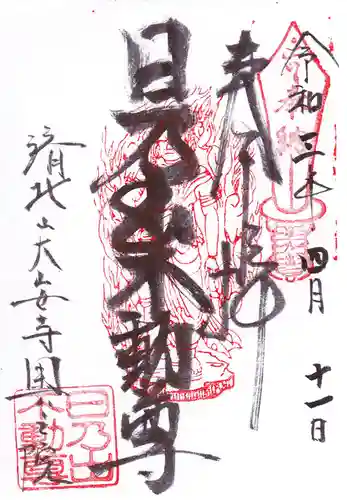 令和三年
四月
十一日
奉拝
日乃出不動尊
清地山大安寺
日乃出
不動尊